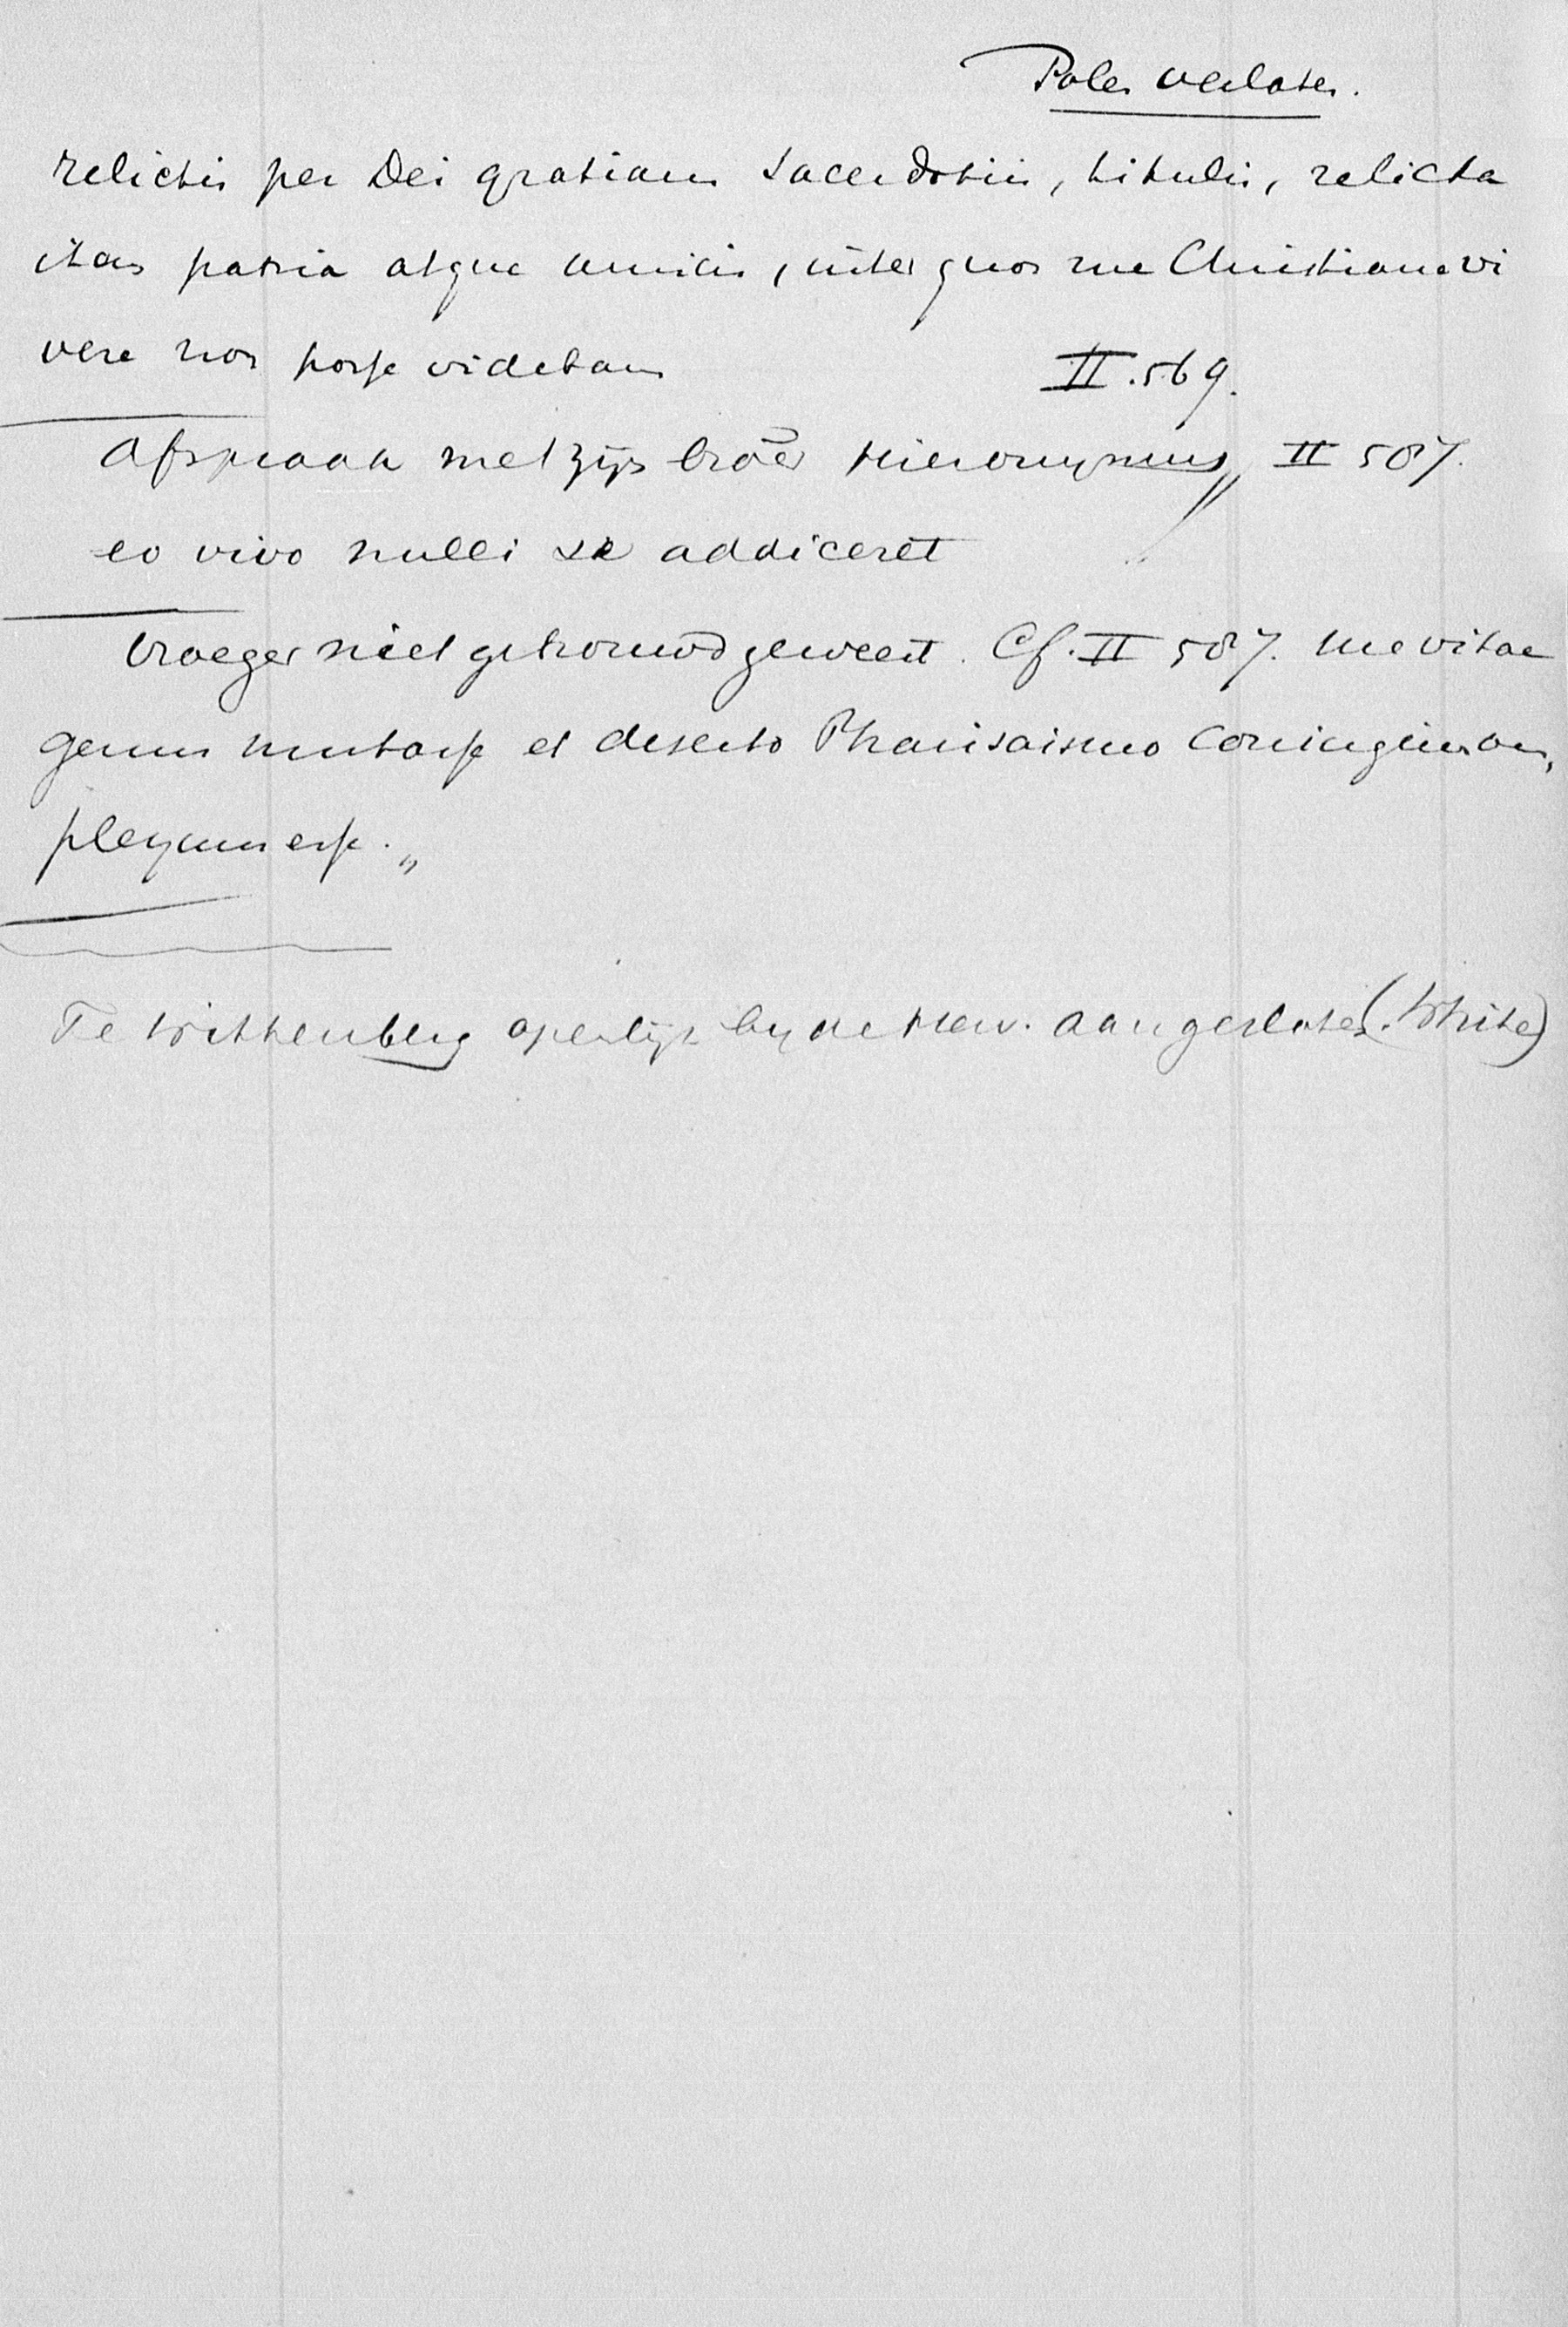 Polen verlaten.
relictis per Dei gratiam sacerdotiis, titulis, relicta
itam patria atque amicis, inter quos me Christiane vi
vere non posse videbam II. 569.
Afspraak met zijn broêr Hieronymus, II 587.
eo vivo nulli se addiceret
Vroeger niet getrouwd geweest. Cf. II 587. me vitae
genus mutasse et deserto Pharisaismo coniugium am,
plexum esse.„
Te Wittenberg openlijk by de Herv. aangesloten (. White)